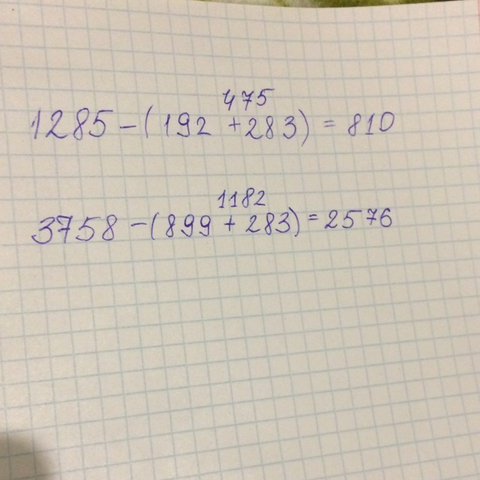 475
1285-(192+283)=810
1182
3758-(899+283)=2576